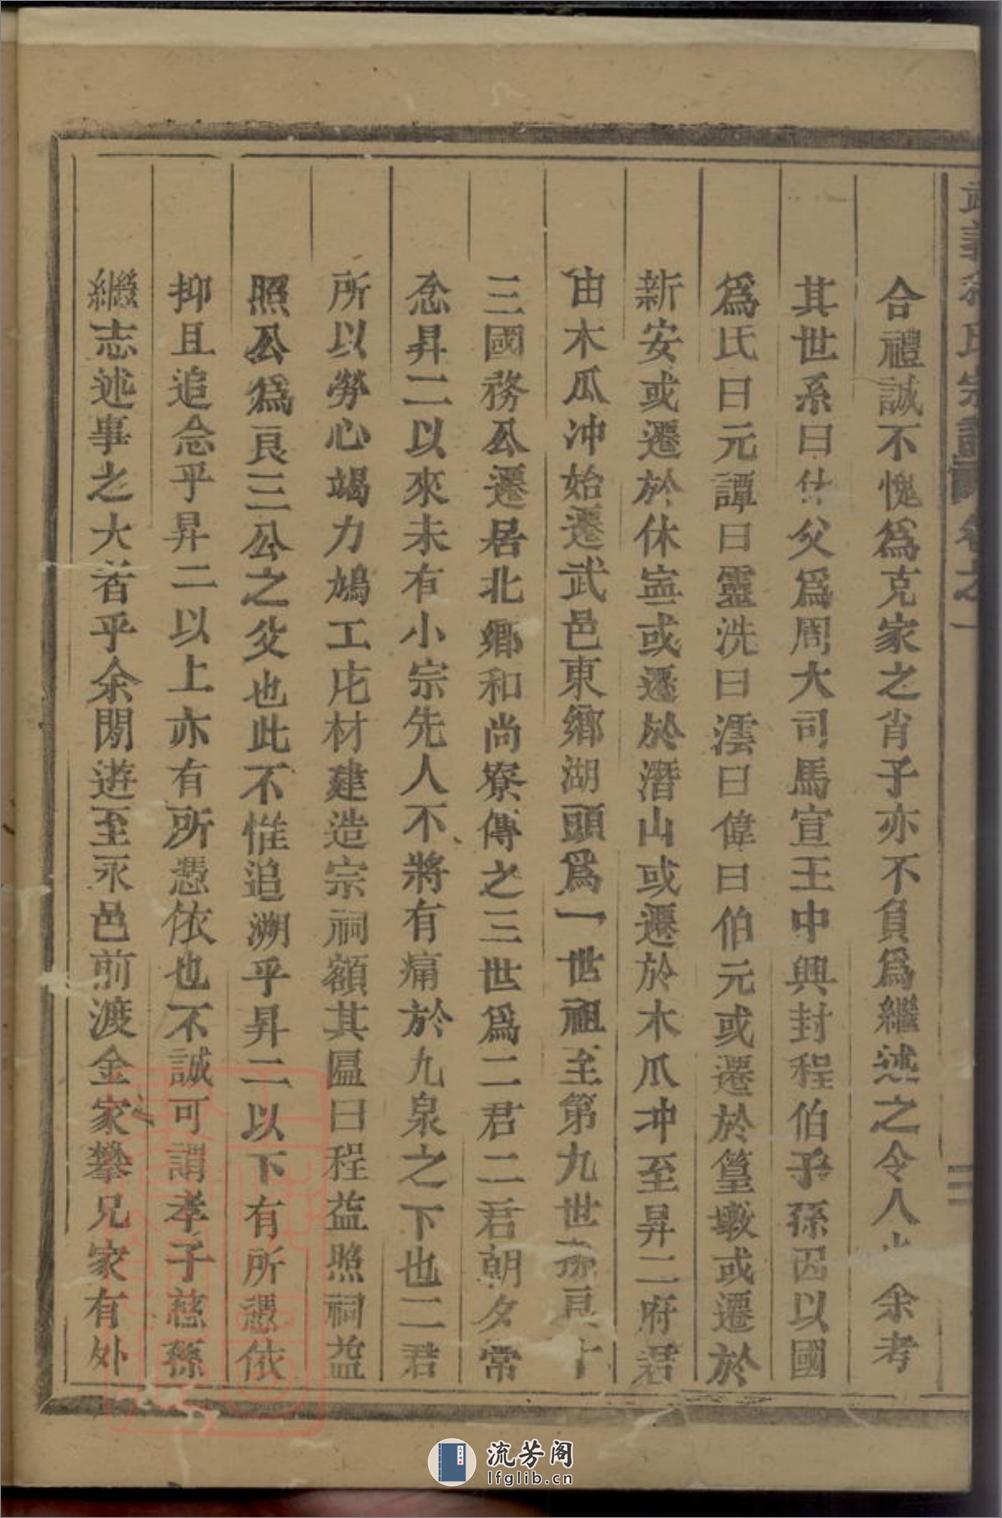 宗譜 卷之一
合禮誠不愧爲克家之肖子亦不負爲繼述之令人 余考
其世系曰休父爲周大司馬宣王中興封程伯子孫因以國
爲氏曰元譚曰靈洗曰澐曰偉曰伯元或遷於篁墩或遷於
新安或遷於休寧或遷於潛山或遷於木瓜冲至昇二府君
由木瓜冲始遷武邑東鄉湖頭爲一世祖至第九世 良十
三國務公遷居北鄉和尚寮傳之三世爲二君二君朝夕常
念昇二以來未有小宗先人不將有痛於九泉之下也二君
所以勞心竭力鳩工庀材建造宗祠額其匾曰程益照祠益
照公爲良三公之父也此不惟追溯乎昇二以下有所憑依
抑且追念乎昇二以上亦有所憑依也不誠可謂孝子慈孫
繼志述事之大者乎余閒遊至永邑前渡金家攀兄家有外
流芳阁
lfglib.cn